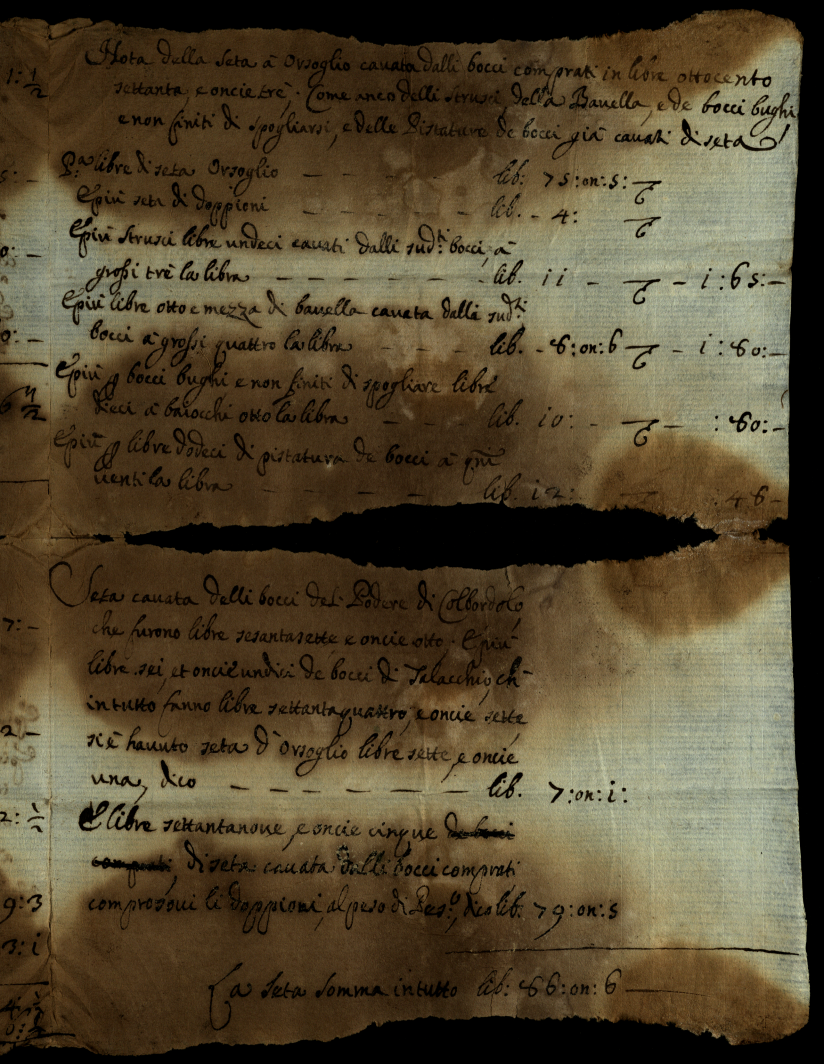 Nota della Seta à Orsoglio cavata dalli bocci comprati in libre ottocento
settanta, e oncie trè. Come anco delli Strusci, della Bavella, e de bocci bughi
e non finiti di spogliarsi, e delle Pistature de bocci già cavati di seta
P.a libre di seta Orsoglio — — — lib: 75:on:5:
E più seta di doppioni — — — lib. - 4:
E più Strusci libre undeci cavati dalli sud.ti bocci, à
grossi trè la libra — — — lib. 11 - — 1:65:-
E più libre otto e mezza di bavella cavata dalli sud.ti
bocci à grossi quattro la libra — — — lib. - 8:on:6 — 1:80:-
E più p bocci bughi e non finiti di spogliare libre
dieci à baiocchi otto la libra — — lib. 10: - — :80:-
E più p libre dodeci di pistatura de bocci à
venti la libra — — — lib. 12: - .48-
Seta cavata delli bocci del Podere di Colbordolo
che furono libre sesantasette e oncie otto. E più
libre sei, et oncie undici de bocci di Talacchio, ch
in tutto fanno libre settantaquattro, e oncie sette
si è havuto seta d'Orsoglio libre sette, e oncie
una, dico — — — lib. 7:on:1:
E libre settantanove, e oncie cinque de bocci
comprati, di seta cavata dalli bocci comprati
compresovi li doppioni, al peso di Pes.o, dico lib: 79:on:5
La seta somma in tutto lib: 86:on:6 —
1:1/2
5: -
0: -
0: -
7: -
2 -
9:3
3:1